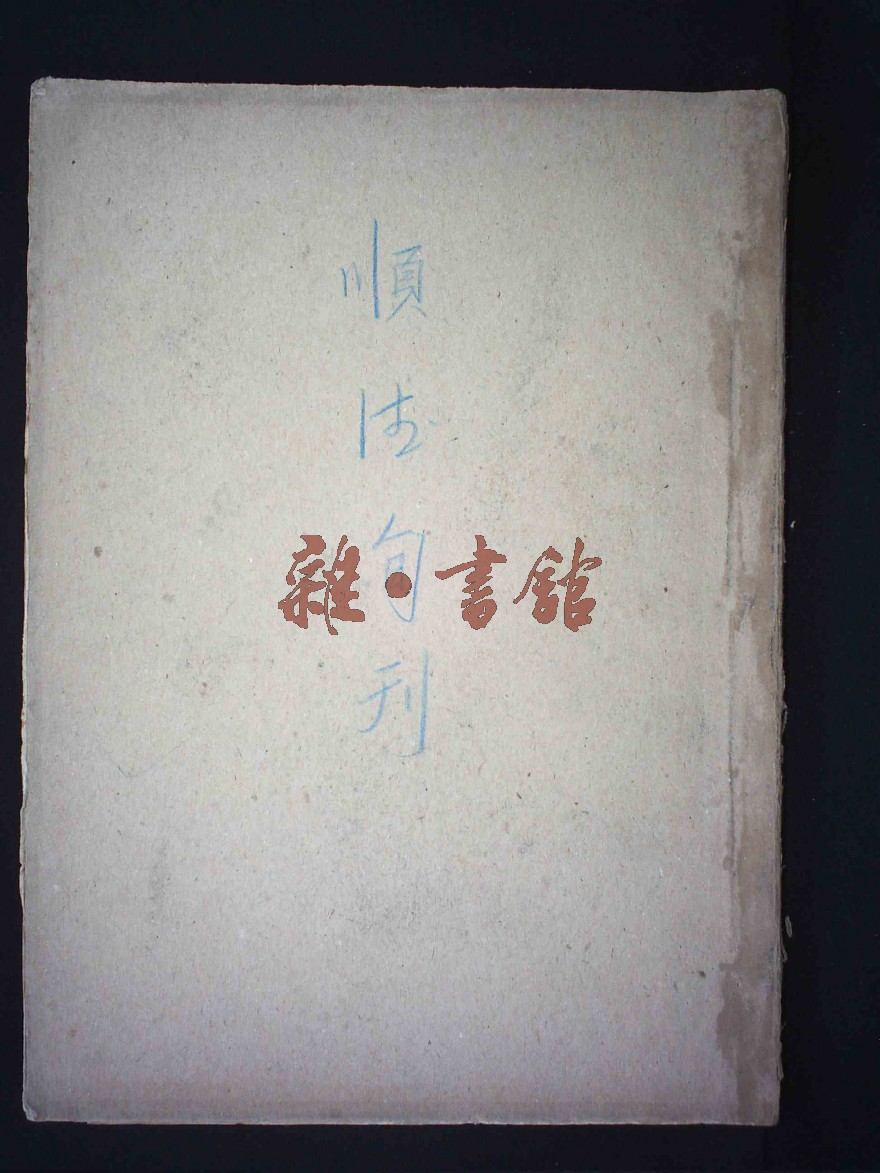 順德旬刊
雜·書館